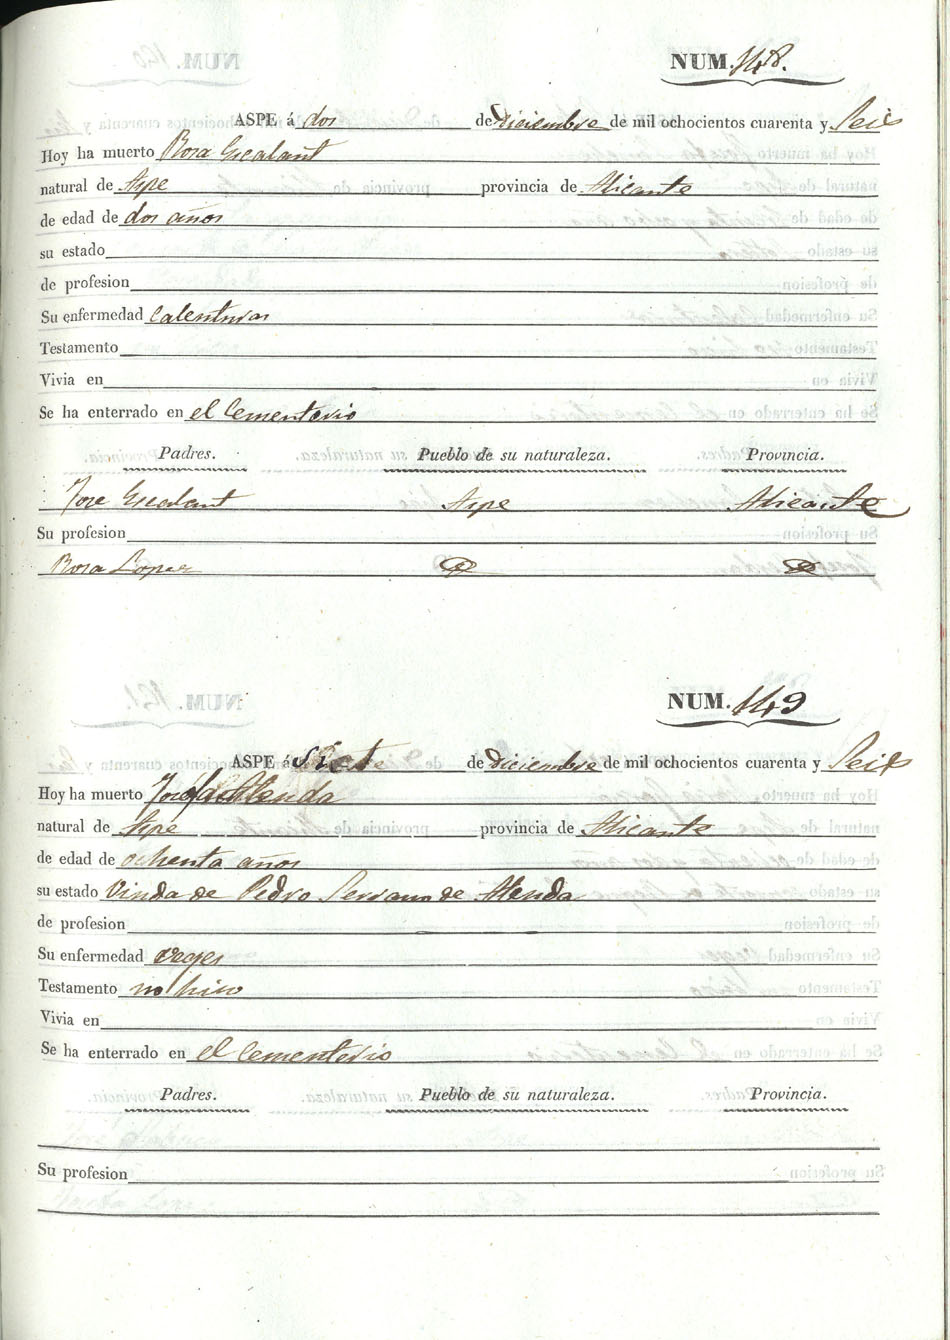 NUM. 148.
ASPE á dos de Diciembre de mil ochocientos cuarenta y Seis
Hoy ha muerto Rosa Escalant
natural de Aspe provincia de Alicante
de edad de dos años
su estado
de profesion
Su enfermedad Calenturas
Testamento
Vivia en
Se ha enterrado en el Cementerio
Padres. Pueblo de su naturaleza. Provincia.
Jose Escalant Aspe Alicante
Su profesion
Rosa Lopez
NUM. 149
ASPE á Siete de Diciembre de mil ochocientos cuarenta y Seis
Hoy ha muerto Josefa Alenda
natural de Aspe provincia de Alicante
de edad de ochenta años
su estado Viuda de Pedro Serrano de Alenda
de profesion
Su enfermedad vejes
Testamento no hiso
Vivia en
Se ha enterrado en el Cementerio
Padres. Pueblo de su naturaleza. Provincia.
Su profesion